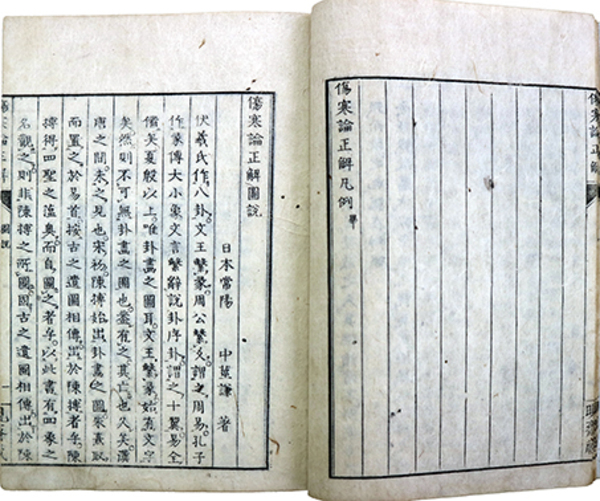 傷寒論正解
傷寒論正解凡例 畢
傷寒論正解圖說
日本常陽 中莖謙 著
伏羲氏作八卦文王繫彖周公繫爻謂之周易孔子
作彖傳大小象文言繫辭說卦序卦謂之十翼易全
備矣夏殷以上唯卦畫之圖耳文王繫彖始有文字
矣然則不可無卦畫之圖也蓋有之其亡也久矣漢
唐之間未之見也宋初陳摶始出卦畫之圖朱熹取
而置之於易首按古之遺圖相傳出於陳摶者乎陳
摶得四聖之蘊奧而自圖之者乎以此書有四象之
名觀之則非陳摶之所圖固古之遺圖相傳出於陳
傷寒論正解 圖說 一